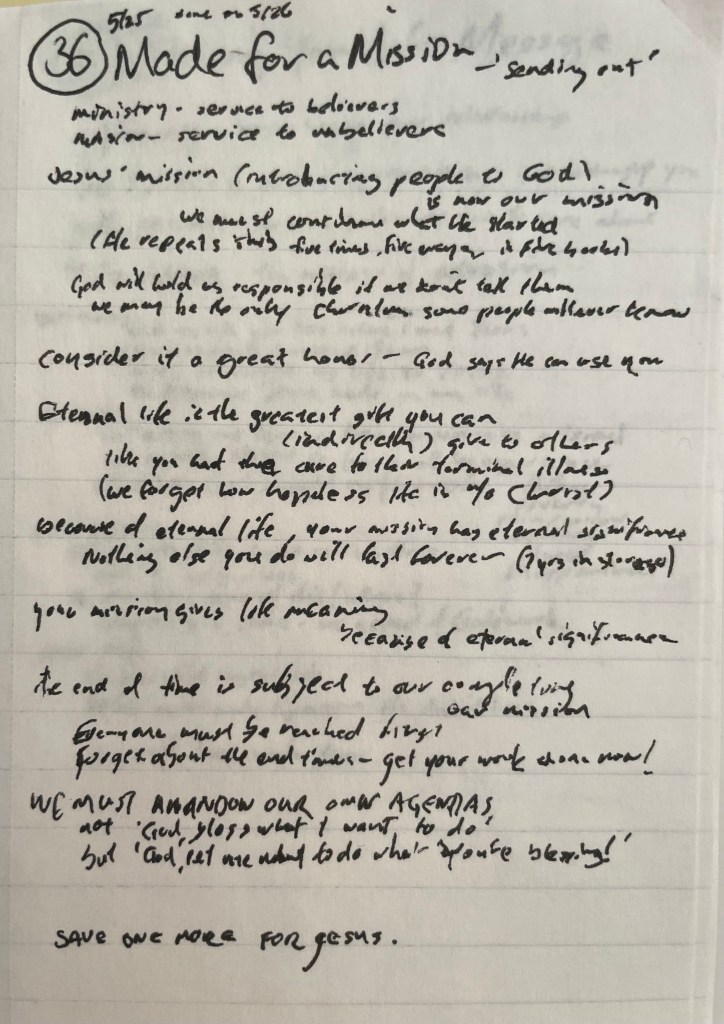 5/25 done on 5/26
36 Made for a Mission - 'sending out'
ministry - service to believers
mission - service to unbelievers
Jesus' mission (introducing people to God)
is now our mission
we must continue what He started
(He repeats this five times, five ways, in five books)
God will hold us responsible if we don't tell them
we may be the only Christian some people will ever know
consider it a great honor - God says He can use you
Eternal life is the greatest gift you can
(indirectly) give to others
like you had the cure to their terminal illness
(we forget how hopeless life is w/o Christ)
because of eternal life, your mission has eternal significance
Nothing else you do will last forever (7 yrs in storage)
your mission gives life meaning
because of eternal significance
the end of time is subject to our completing
our mission
Everyone must be reached first
forget about the end times - get your work done now!
WE MUST ABANDON OUR OWN AGENDAS
not 'God, bless what I want to do'
but 'God, let me want to do what you're blessing!'
SAVE ONE MORE FOR JESUS.